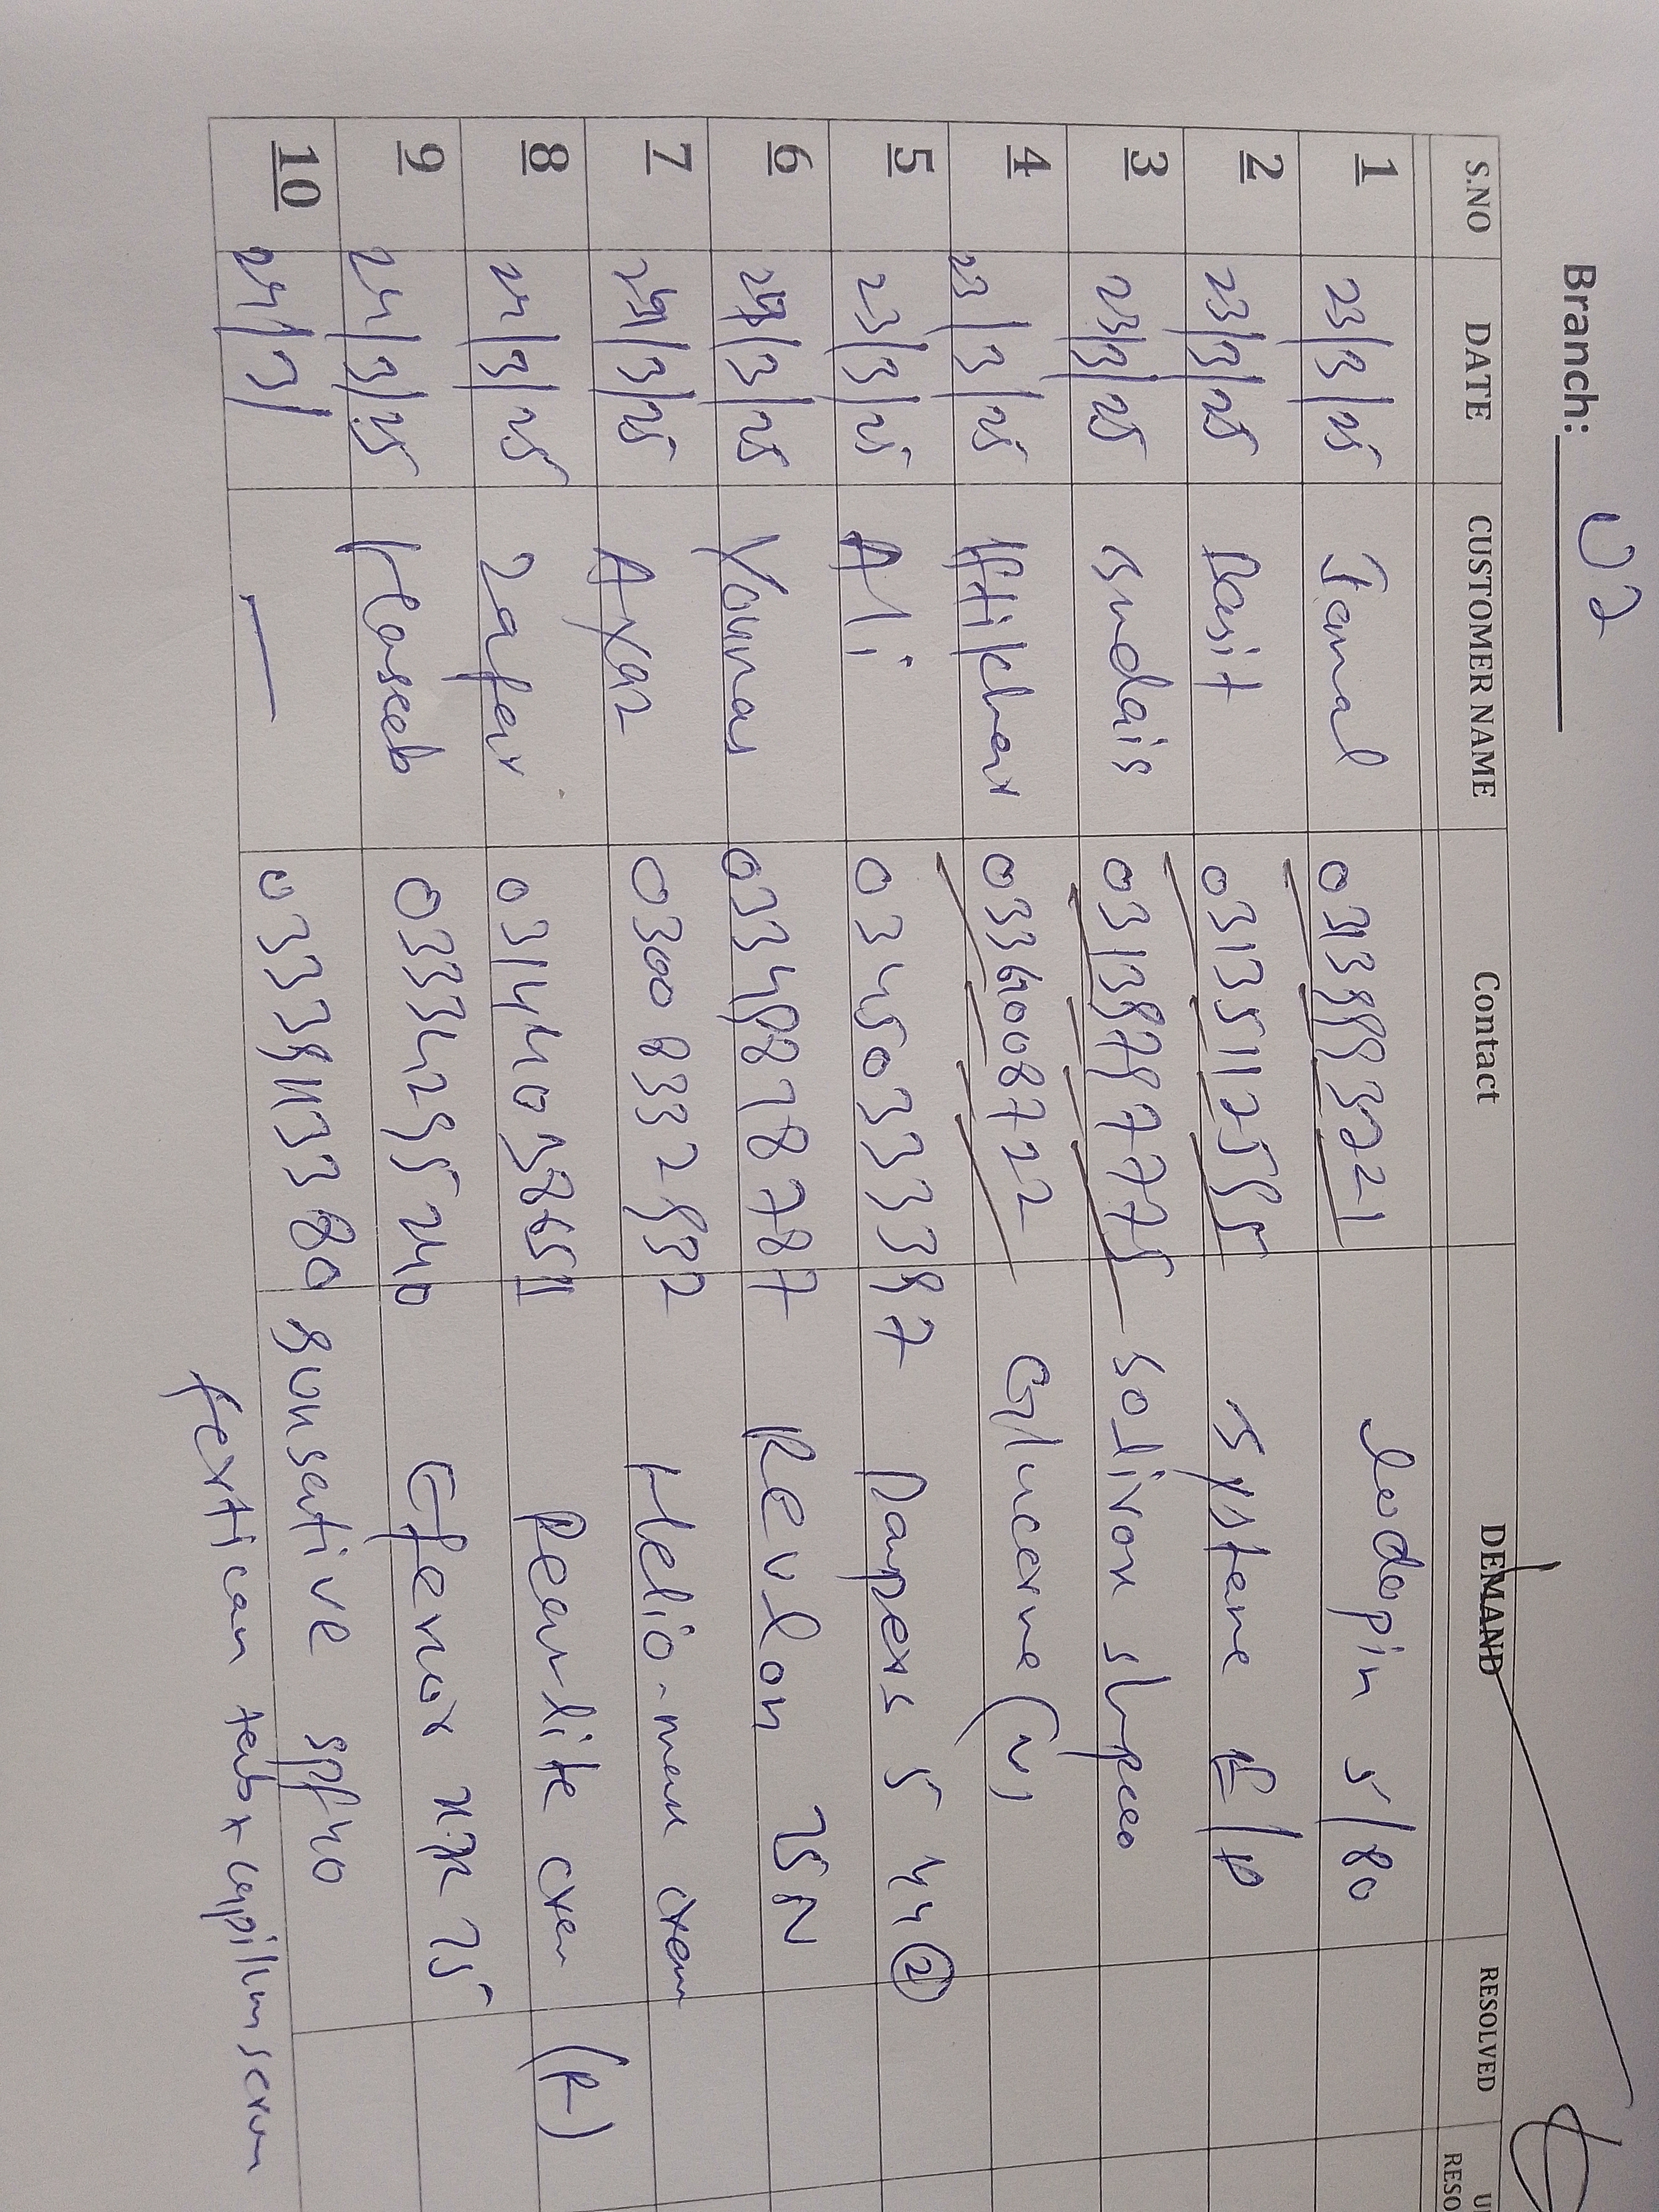 Branch: 02
S.NO DATE CUSTOMER NAME Contact DEMAND RESOLVED
1 23/3/25 Jamal Lodopin 5/80
2 23/3/25 Basit 03135112555 systane E/D
3 23/3/25 sudais 03139797775 solivon
4 23/3/25 Iftikhar 0336008722 Glucerna (V)
5 23/3/25 Ali 03450333397 Dampers 5 44 (2)
6 24/3/25 Younas 03348878787 Revlon 75 N
7 24/3/25 Ayaz 03008332532 Helio-max crem
8 24/3/25 Zafar Pearlite crem (P)
9 24/3/25 Haseeb 03342955240 Efenor XR 75
10 24/3/ — sunsative spf 40
fertican tab x capillum serum